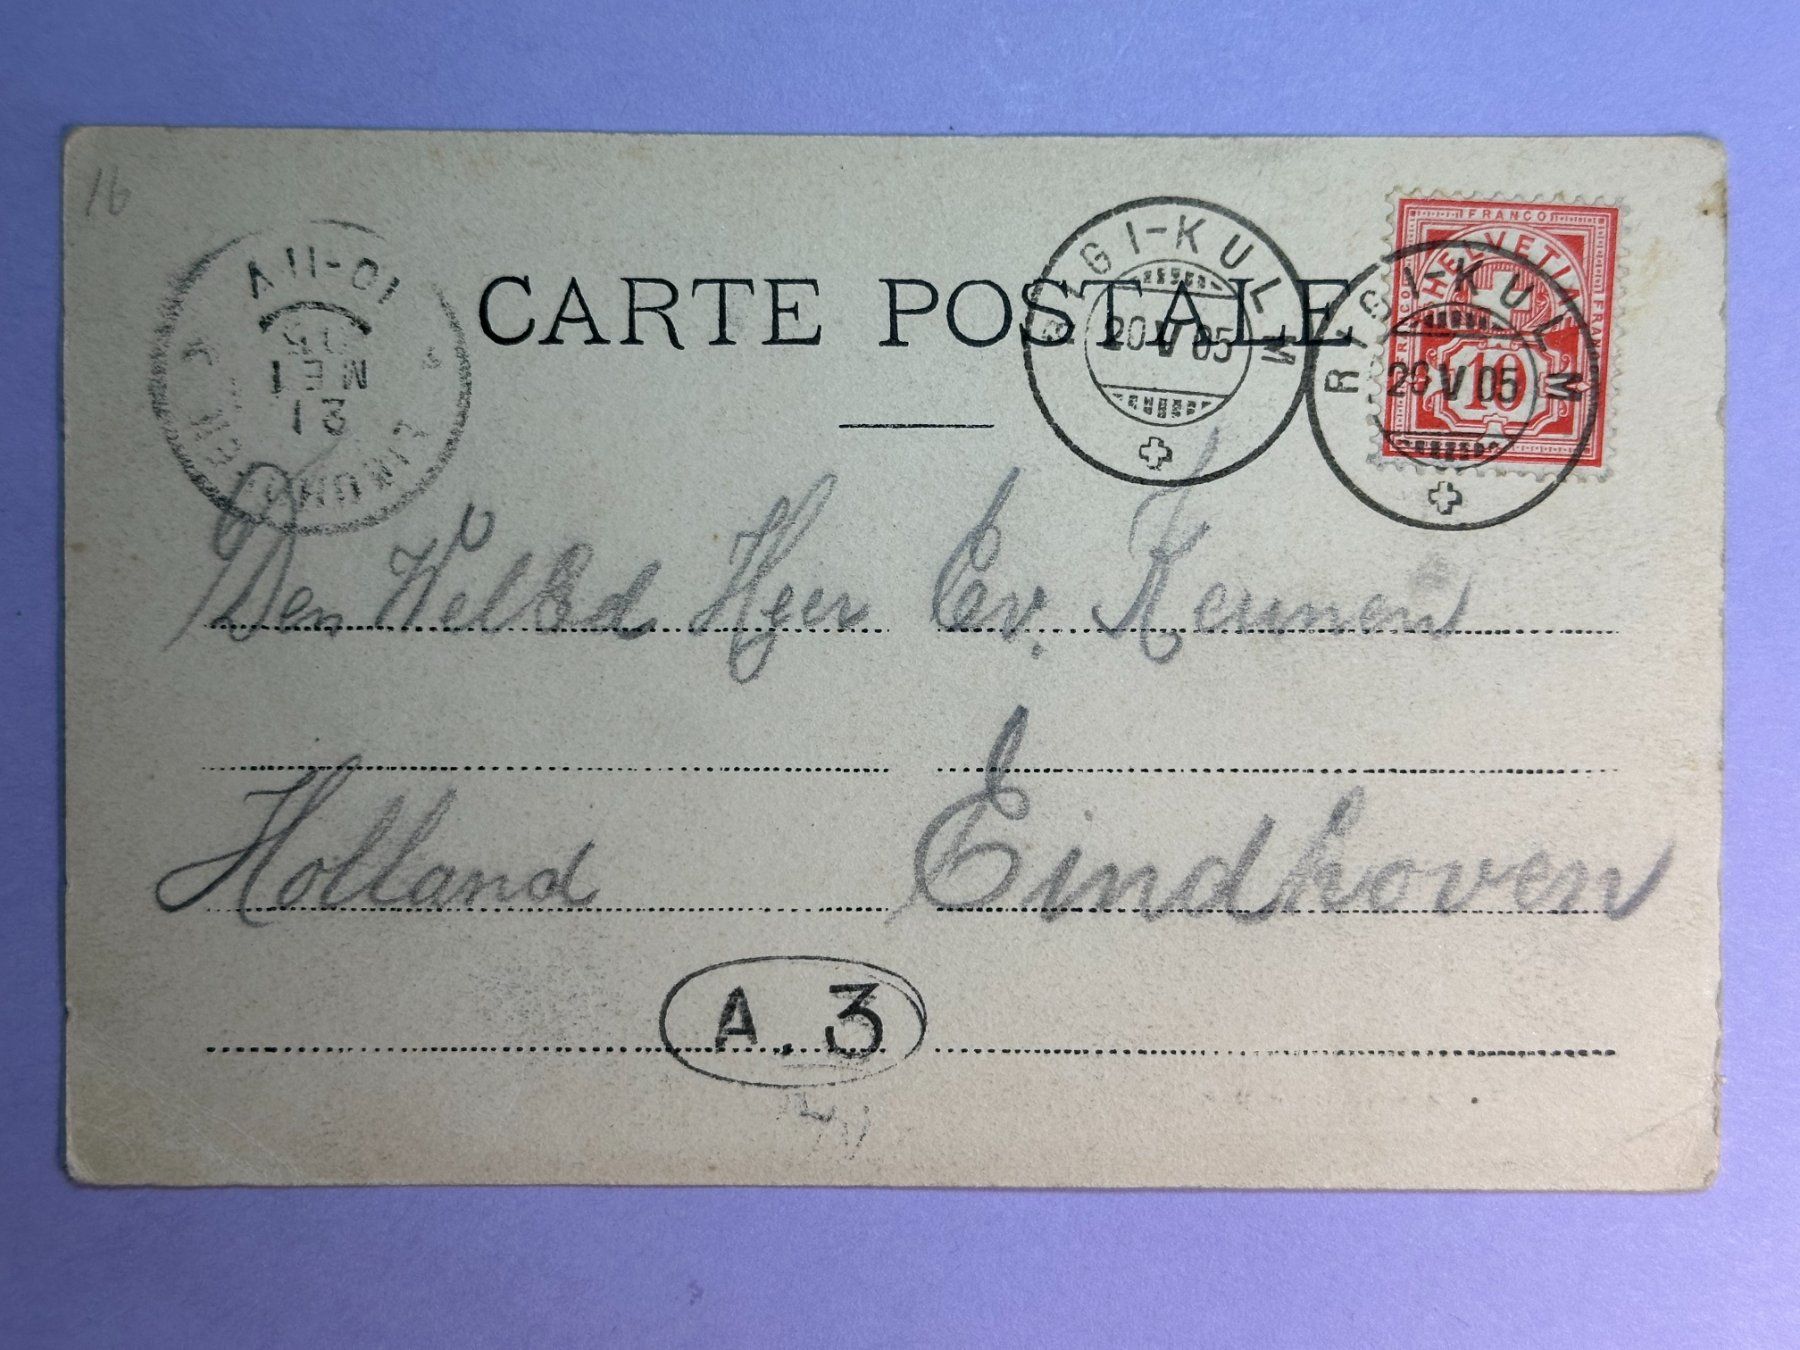 16
CARTE POSTALE
RIGI-KULM
20 V 05
RIGI-KULM
20 V 05
FRANCO
HELVETIA
10
10-11V
MEI
21
Den WelEd Heer Ev. Keunen
Holland Eindhoven
A.3